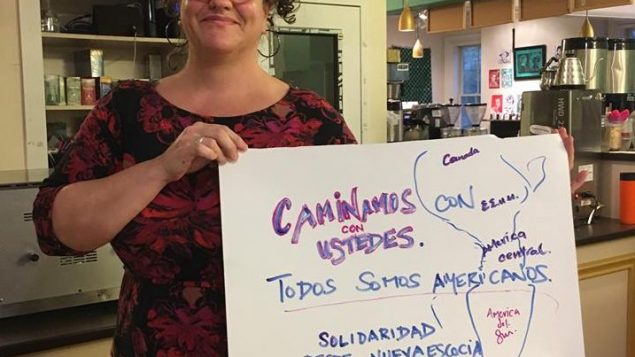 Canada
CAMINAMOS
CON
USTEDES.
CON
EE.UU.
America
central.
TODOS SOMOS AMERICANOS.
America
del
Sur.
SOLIDARIDAD
NUEVA ESCOCIA